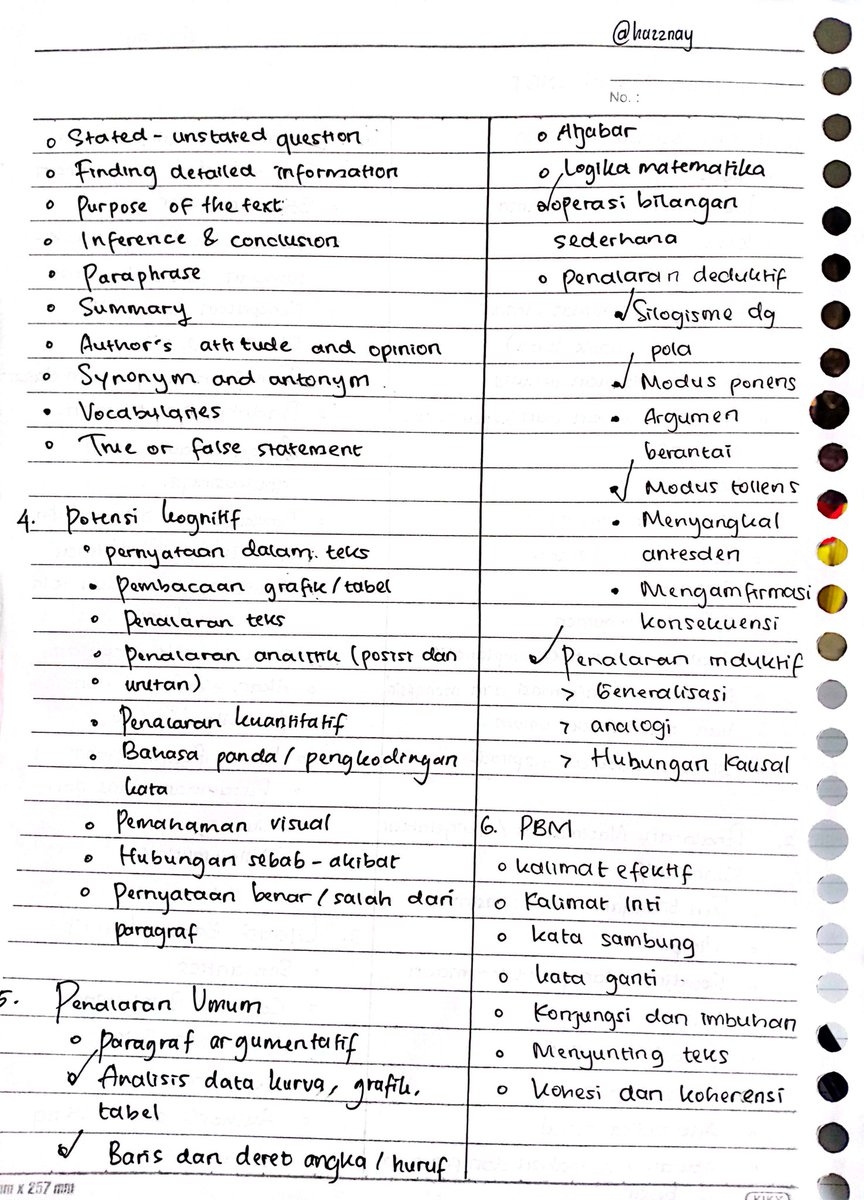 @hazznay
No. :
o Stated - unstated question
o Finding detailed information
o Purpose of the text
o Inference & conclusion
o Paraphrase
• Summary
o Author's attitude and opinion
o Synonym and antonym
• Vocabularies
o True or false statement
4. Potensi kognitif
• pernyataan dalam teks
• Pembacaan grafik / tabel
o Penalaran teks
o Penalaran analitik (posisi dan
o urutan)
o Penalaran kuantitatif
• Bahasa panda / pengkodingan
kata
o Pemahaman visual
o Hubungan sebab - akibat
o Pernyataan benar / salah dari
paragraf
5. Penalaran Umum
o paragraf argumentatif
✓ Analisis data kurva, grafik,
tabel
✓ Baris dan deret angka / huruf
o Aljabar
o Logika matematika
✓ operasi bilangan
sederhana
o penalaran deduktif
✓ Silogisme dg
pola
✓ Modus ponens
• Argumen
berantai
✓ Modus tollens
• Menyangkal
antesden
• Mengamfirmasi
konsekuensi
✓ Penalaran induktif
> Generalisasi
> analogi
> Hubungan Kausal
6. PBM
o kalimat efektif
o Kalimat Inti
o kata sambung
o kata ganti
o Konjungsi dan imbuhan
o Menyunting teks
o kohesi dan koherensi
m x 257 mm
KIKY